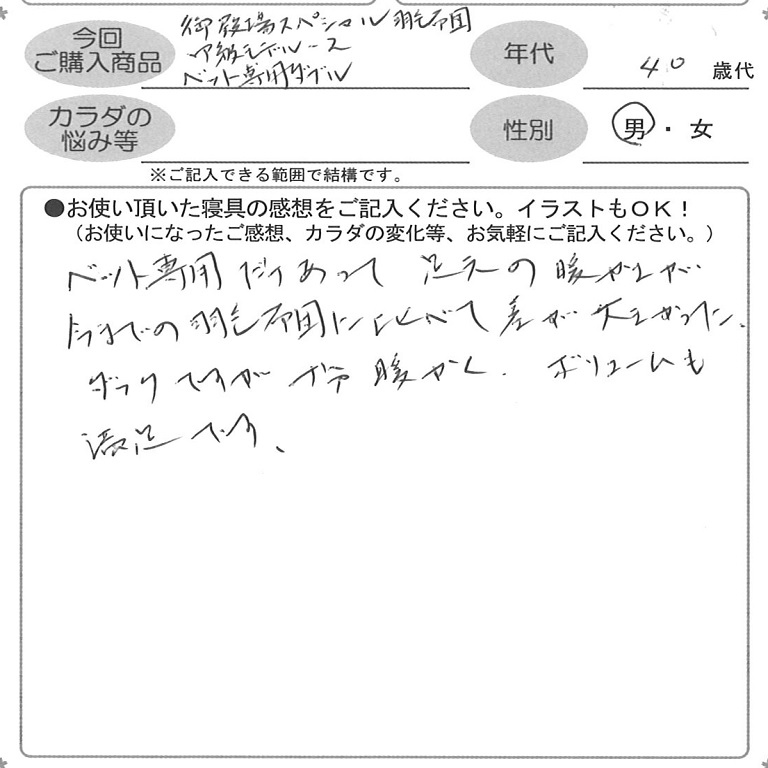 今回
ご購入商品
御殿場スペシャル羽毛布団
ベット専用ダブル
年代
40 歳代
カラダの
悩み等
性別
男・女
※ご記入できる範囲で結構です。
●お使い頂いた寝具の感想をご記入ください。イラストもOK！
（お使いになったご感想、カラダの変化等、お気軽にご記入ください。）
ベット専用だけあって 足元の暖かさが
今までの羽毛布団に比べて差が大きかった、
ダックですが 十分暖かく、ボリュームも
満足です、